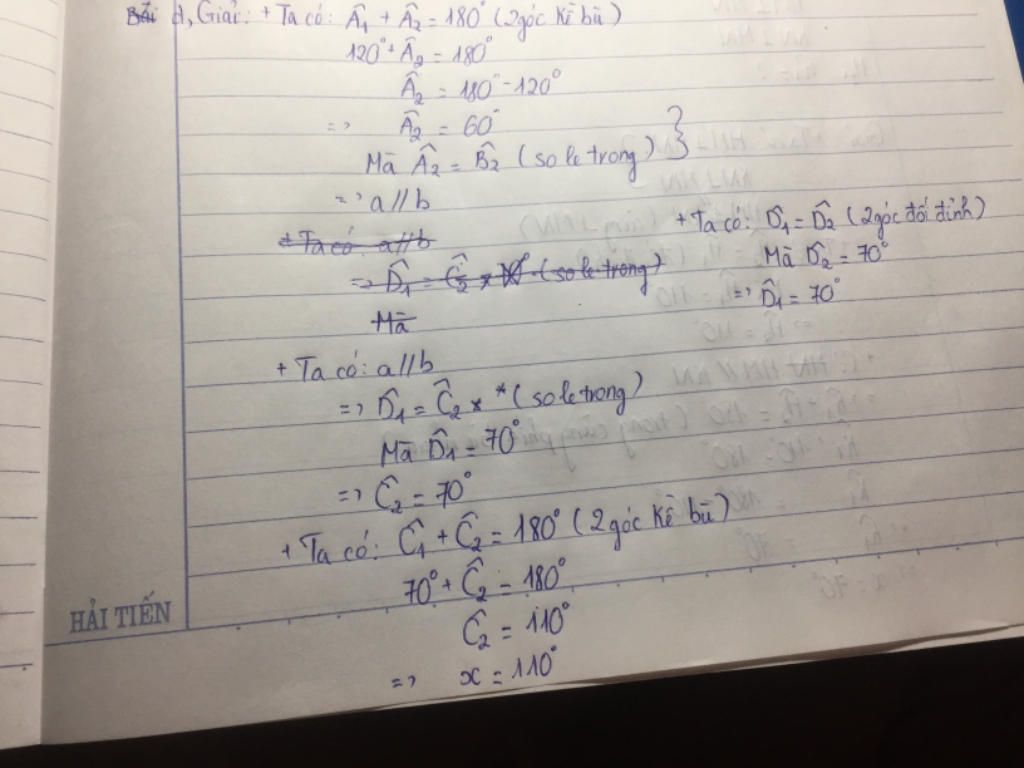 Bài d, Giải: + Ta có: Â₁ + Â₂ = 180° (2 góc kề bù)
120° + Â₂ = 180°
Â₂ = 180° - 120°
=> Â₂ = 60°
Mà Â₂ = B̂₂ (so le trong) }
=> a // b
+ Ta có a // b
=> D̂₁ = Ĉ₂ (so le trong)
Mà
+ Ta có: D̂₁ = D̂₂ (2 góc đối đỉnh)
Mà D̂₂ = 70°
=> D̂₁ = 70°
+ Ta có: a // b
=> D̂₁ = Ĉ₂ * * (so le trong)
Mà D̂₁ = 70°
=> Ĉ₂ = 70°
+ Ta có: Ĉ₁ + Ĉ₂ = 180° (2 góc kề bù)
70° + Ĉ₂ = 180°
Ĉ₂ = 110°
=> x = 110°
HẢI TIẾN